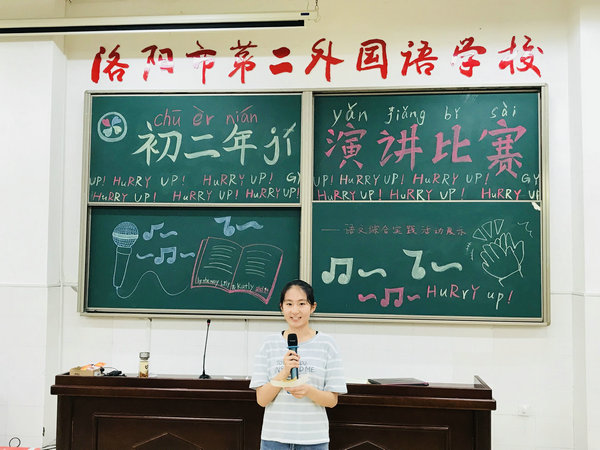 洛阳市第二外国语学校
chū èr nián
初二年j
yǎn jiǎng bǐ sài
演讲比赛
UP! HURRY UP! HURRY UP! GY
HURRY UP! HURRY UP! HURRY UP!
UP! HURRY UP! HURRY UP! GY
HURRY UP! HURRY UP! HURRY UP
——语文综合实践活动展示
HuRRY up!